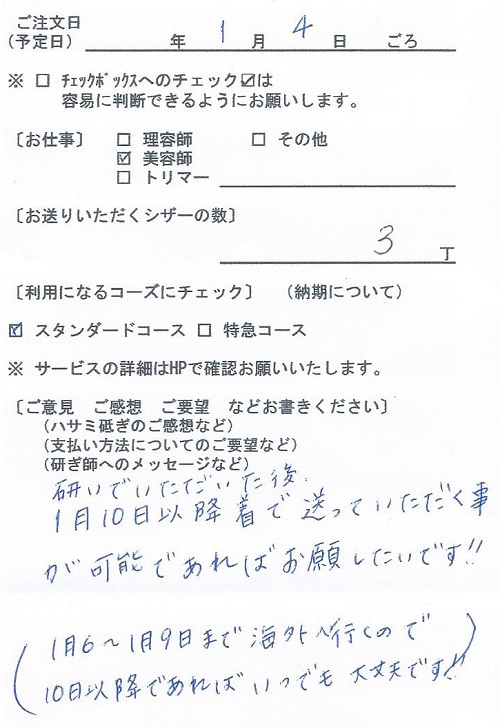 ご注文日
(予定日) 年 1 月 4 日 ごろ
※ □ ﾁｪｯｸﾎﾞｯｸｽへのチェック☑は
容易に判断できるようにお願いします。
〔お仕事〕 □ 理容師 □ その他
☑ 美容師
□ トリマー
〔お送りいただくシザーの数〕
3 丁
〔利用になるコーズにチェック〕 (納期について)
☑ スタンダードコース □ 特急コース
※ サービスの詳細はHPで確認お願いいたします。
〔ご意見 ご感想 ご要望 などお書きください〕
(ハサミ砥ぎのご感想など)
(支払い方法についてのご要望など)
(研ぎ師へのメッセージなど)
研いでいただいた後、
1月10日以降着で送っていただく事
が可能であればお願したいです!!
(1月6〜1月9日まで海外へ行くので
10日以降であればいつでも大丈夫です!!)